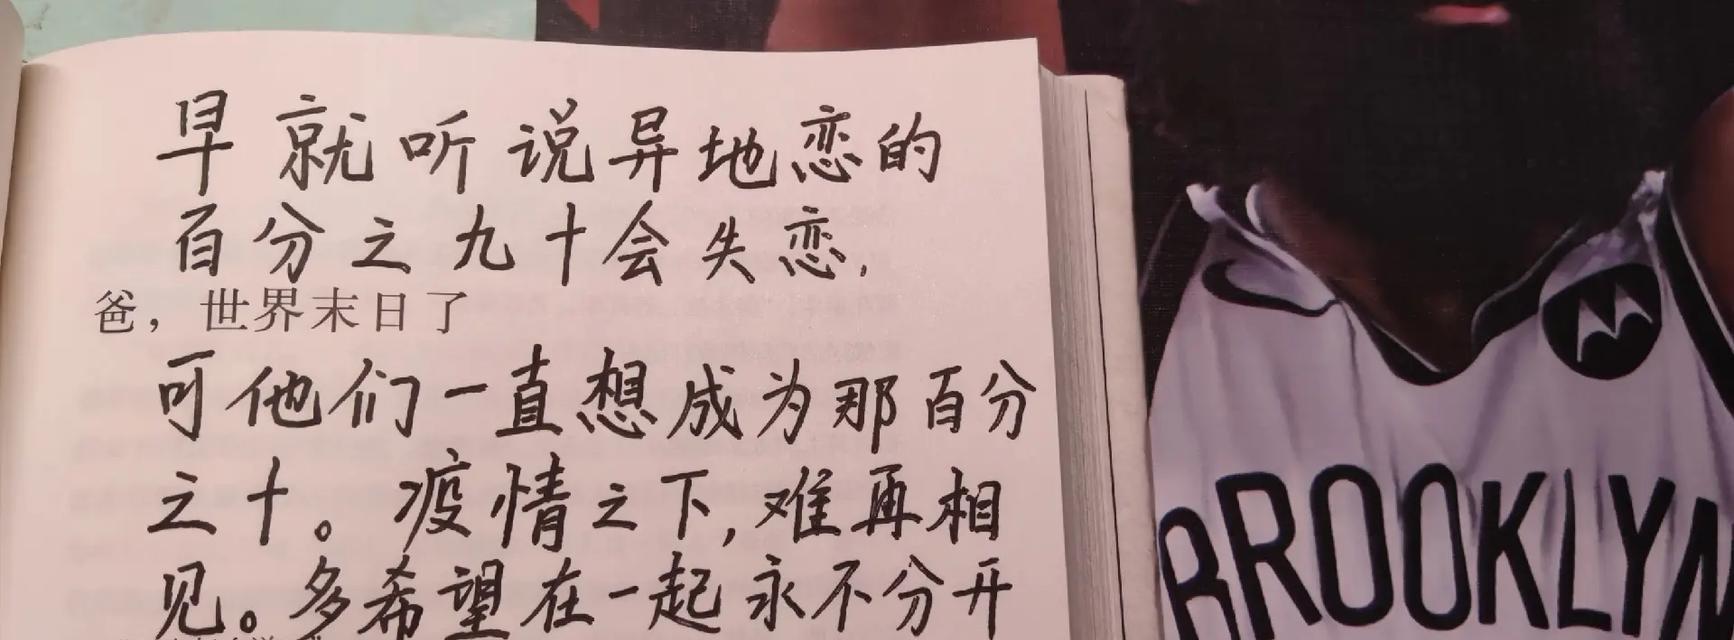 早就听说异地恋的
百分之九十会失恋,
爸，世界末日了
可他们一直想成为那百分
之十。疫情之下,难再相
见。多希望在一起永不分开
BROOKLYN